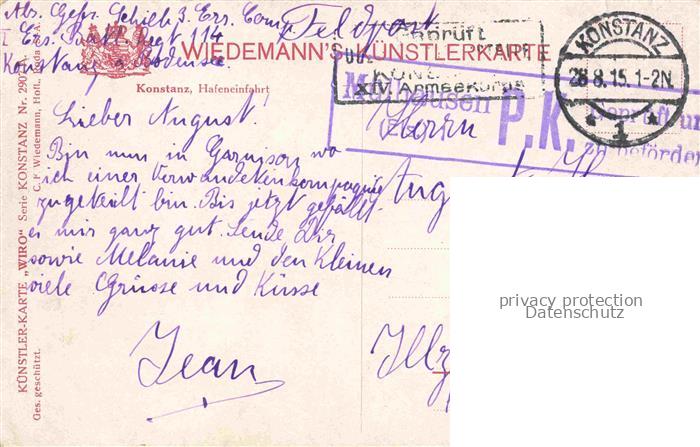 Abs. Gefr. Schieb 3. Ers. Comp.
I Ers. Batl. Regt 114
Konstanz a. Bodensee.
Feldpost
WIEDEMANN'S KÜNSTLERKARTE
Konstanz, Hafeneinfahrt
Geprüft
XIV. Armeekorps
KONSTANZ
28.8.15. 1-2N.
* 1 *
Mülhausen
P.K.
Geprüft und
zu befördern
Lieber August!
Bin nun in Garnison wo
ich einer Verwundetenkompagnie
zugeteilt bin. Bis jetzt gefällt
es mir ganz gut. Sende Dir
sowie Melanie und den Kleinen
viele Grüsse und Küsse
Jean
Herrn
August
Illz
KÜNSTLER-KARTE „WIRO" Serie KONSTANZ Nr. 2907
C. F. Wiedemann, Hofl.
Ges. geschützt.
privacy protection
Datenschutz